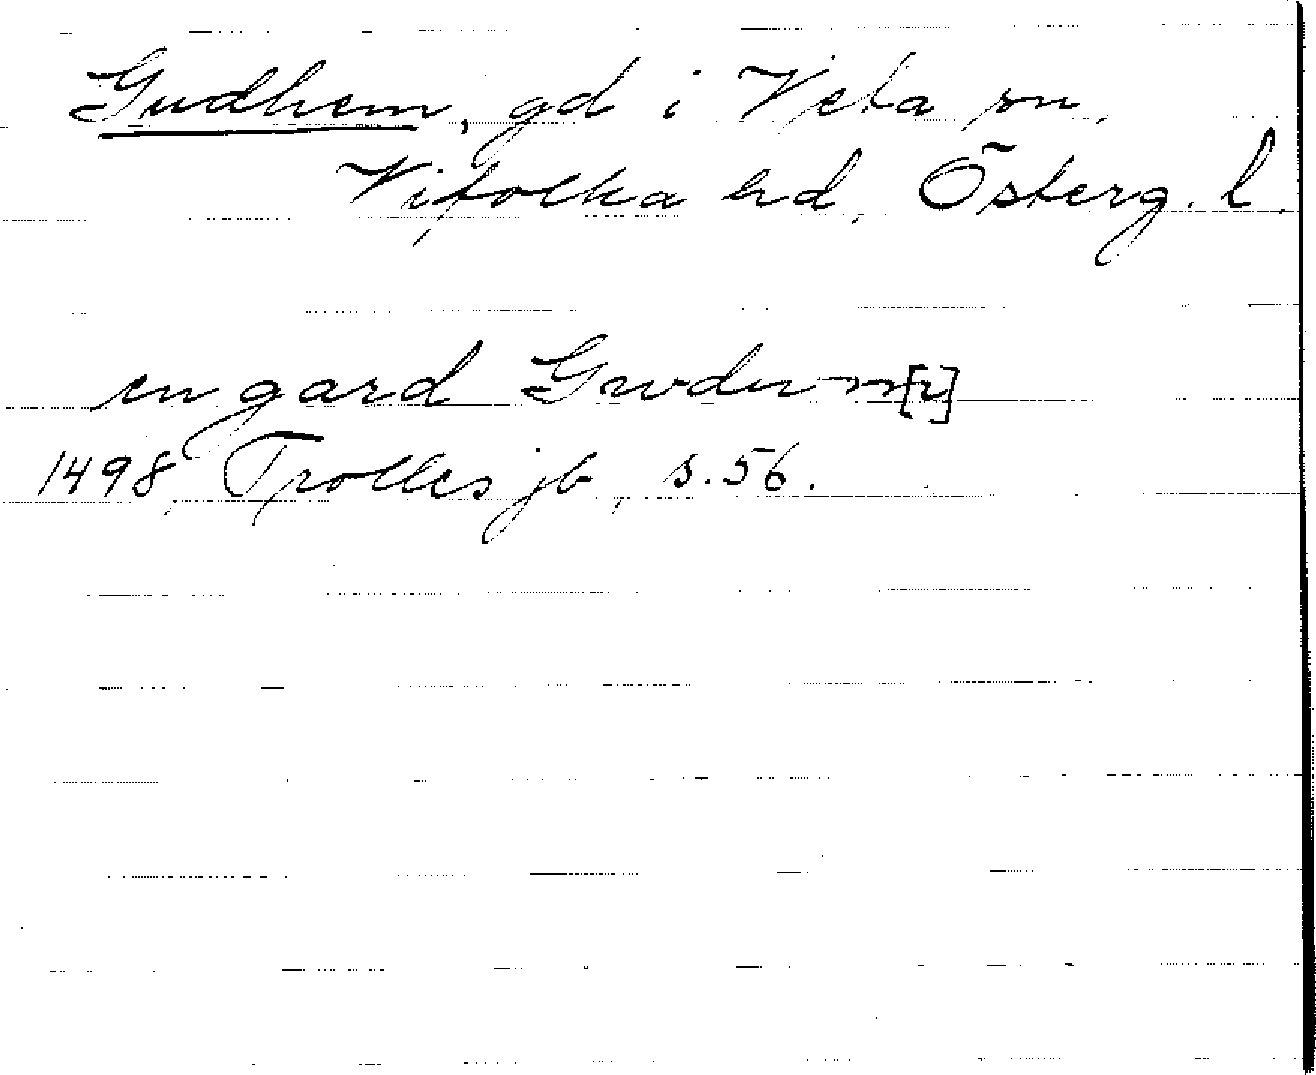 Gudhem, gd i Veta sn,
Vifolka hd, Österg. l.
en gard Gwdum[?]
1498, Trolles jb, s. 56.